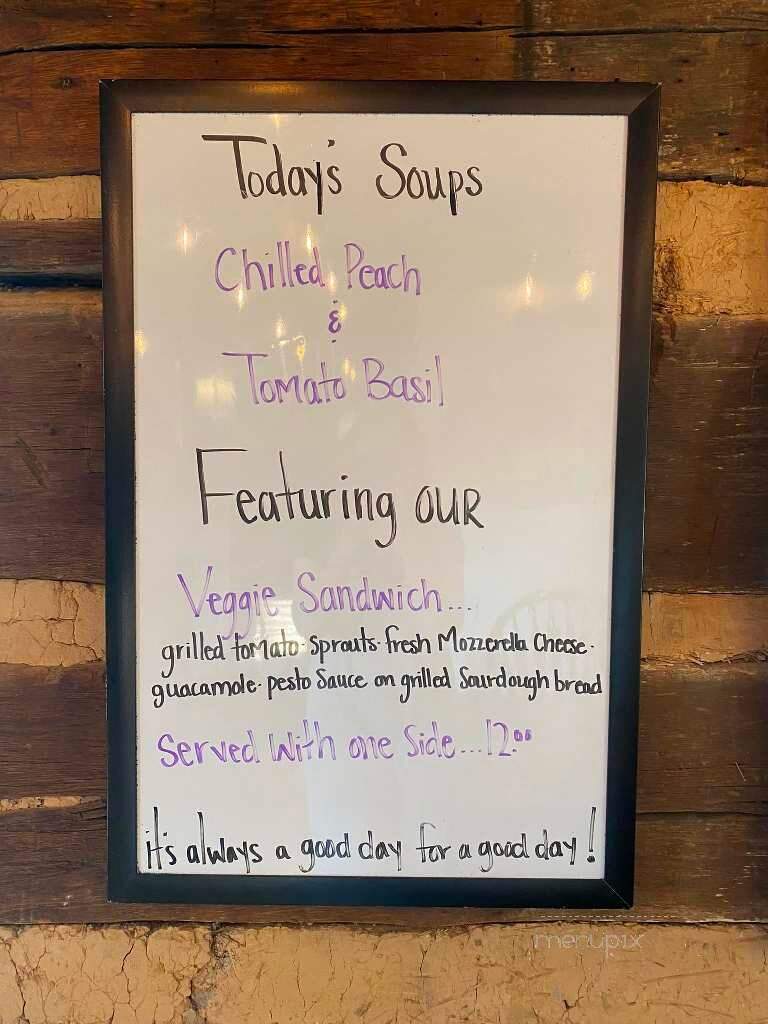 Today's Soups
Chilled Peach
&
Tomato Basil
Featuring our
Veggie Sandwich...
grilled tomato · Sprouts · fresh Mozzerella Cheese ·
guacamole · pesto Sauce on grilled Sourdough bread
Served with one Side...12.00
it's always a good day for a good day!
menupix